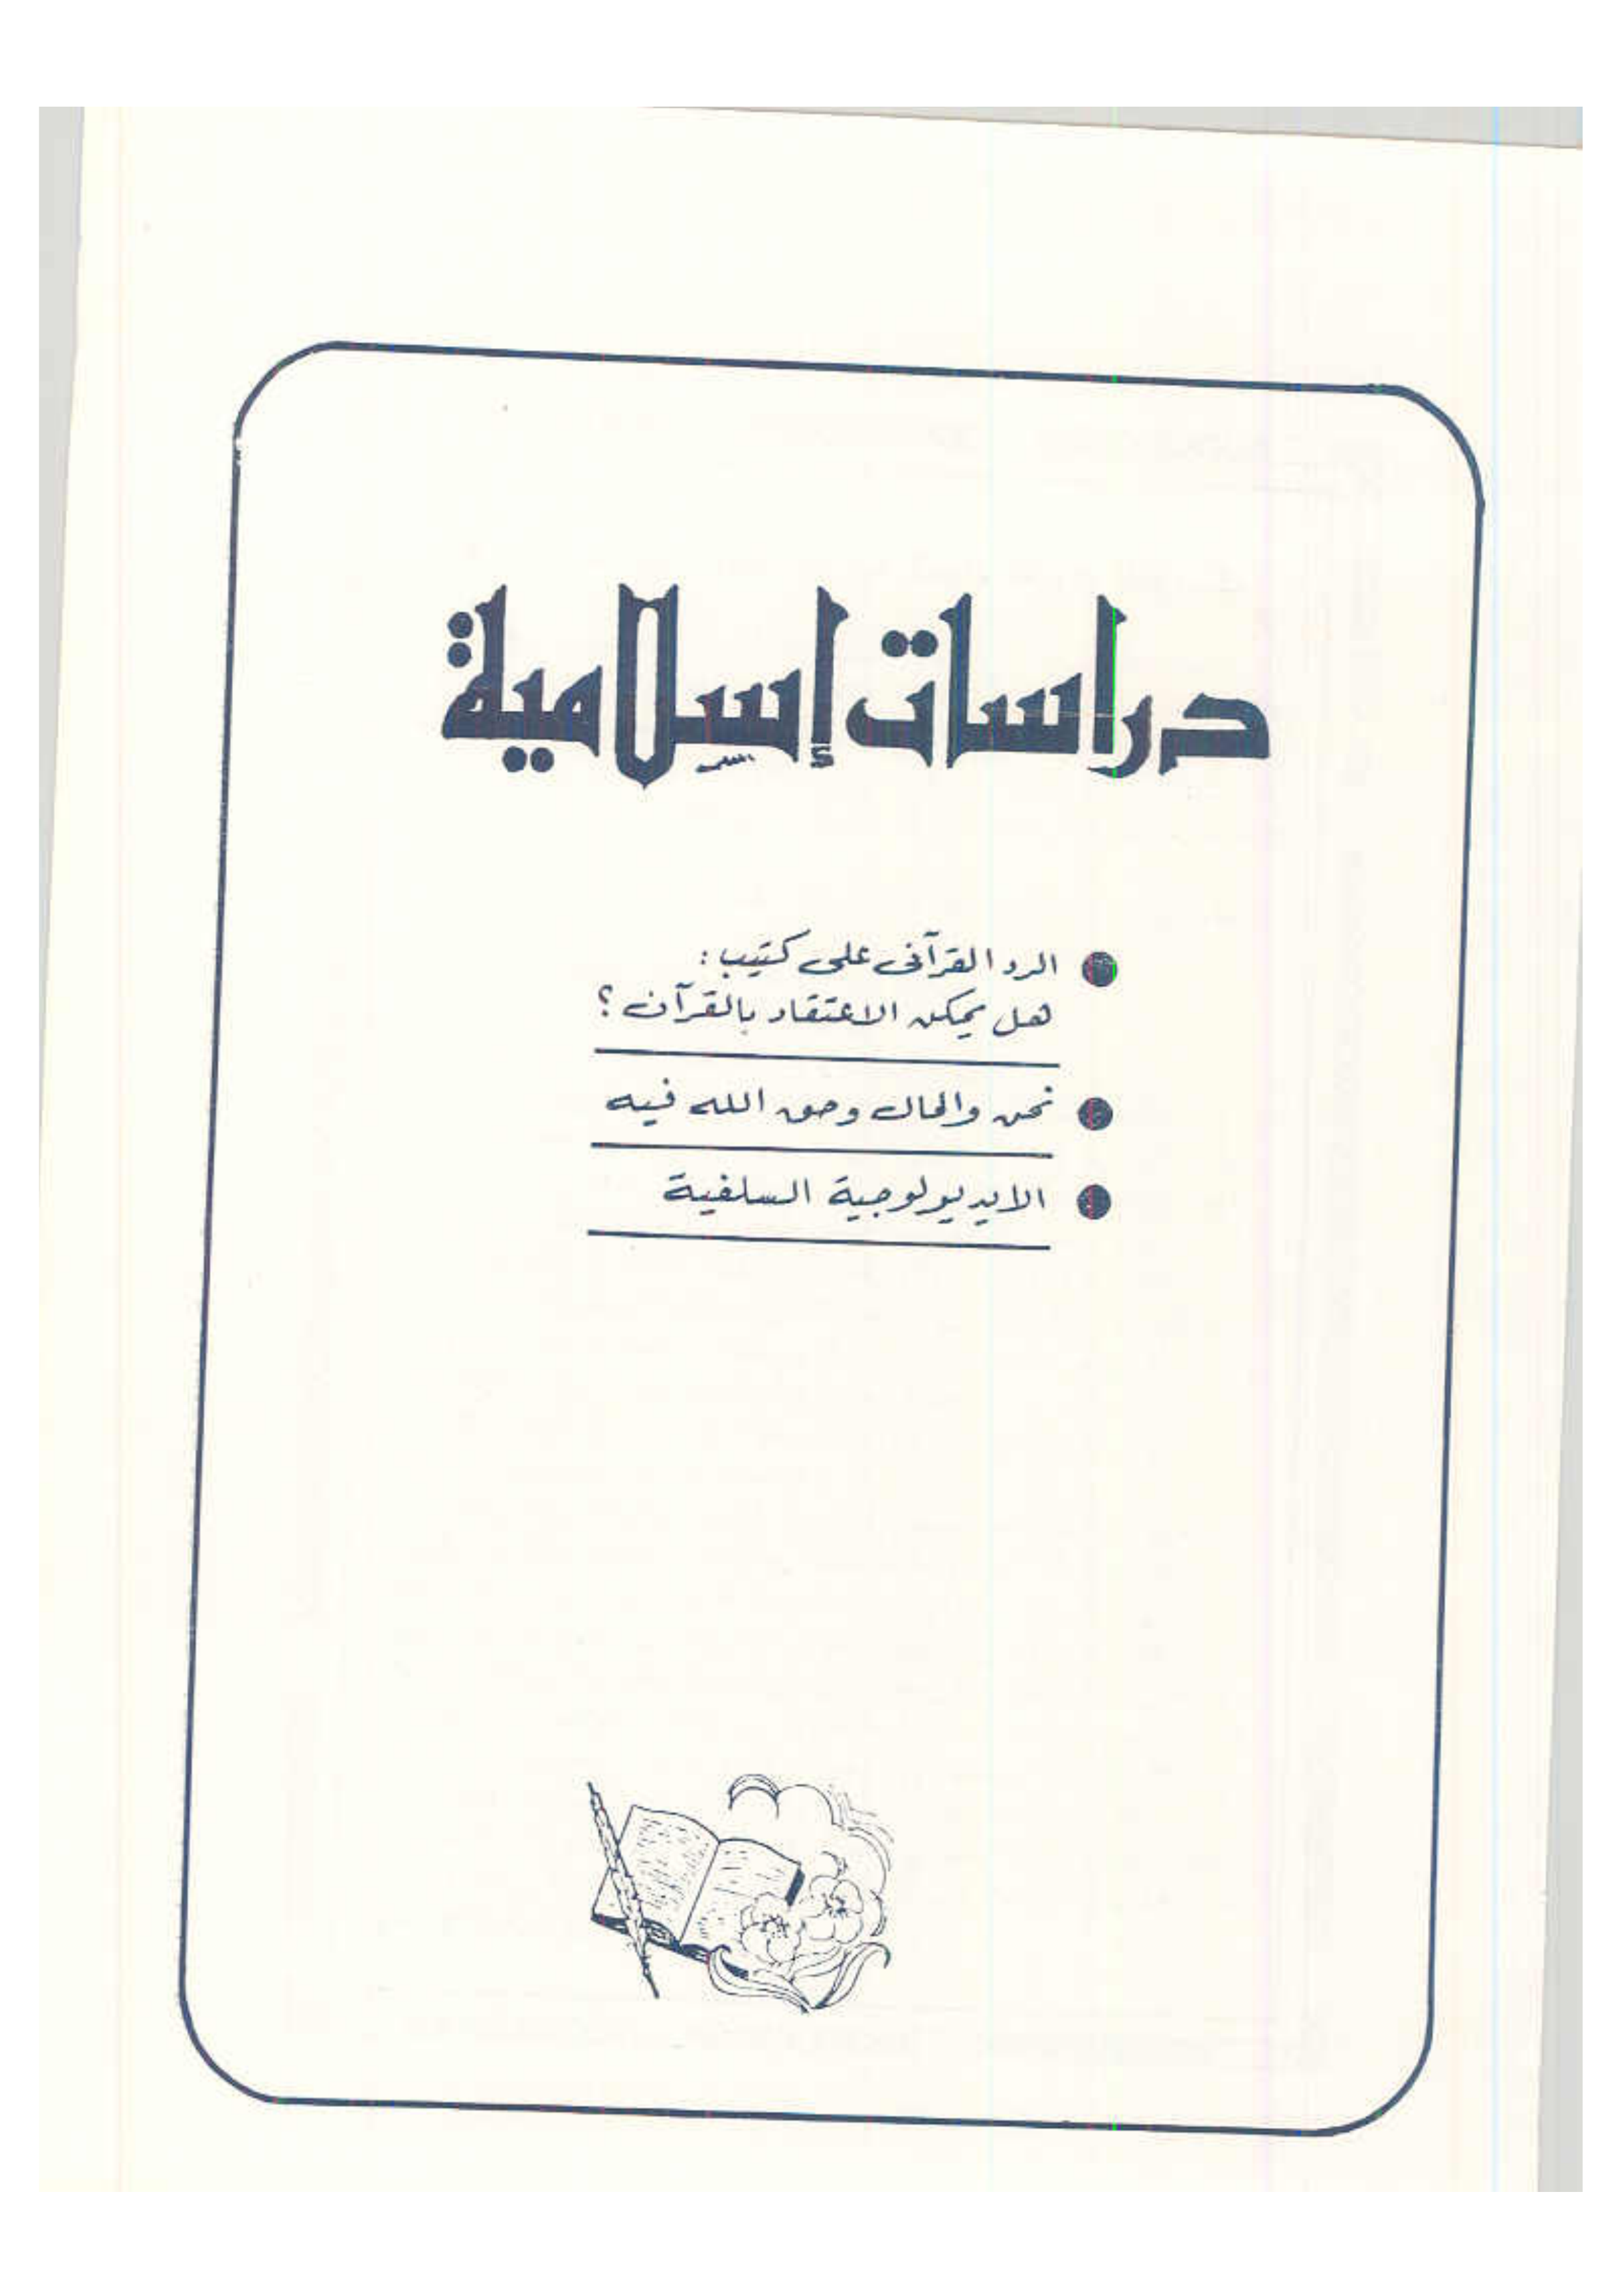 دراسات إسلامية
الرد القرآنى على كتيب :
هل يمكن الاعتقاد بالقرآن ؟
نحن والمال وحق الله فيه
الايديولوجية السلفية